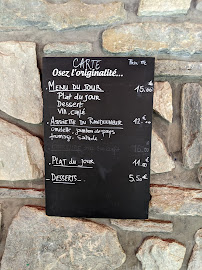 CARTE Prix €
Osez l'originalité...
MENU DU JOUR 15.00 €
Plat du jour
Dessert
Vin, café
ASSIETTE DU RANDONNEUR 12.
omelette, jambon de pays
fromage, salade
PLAT DU JOUR 11.00 €
DESSERTS 5,50 €